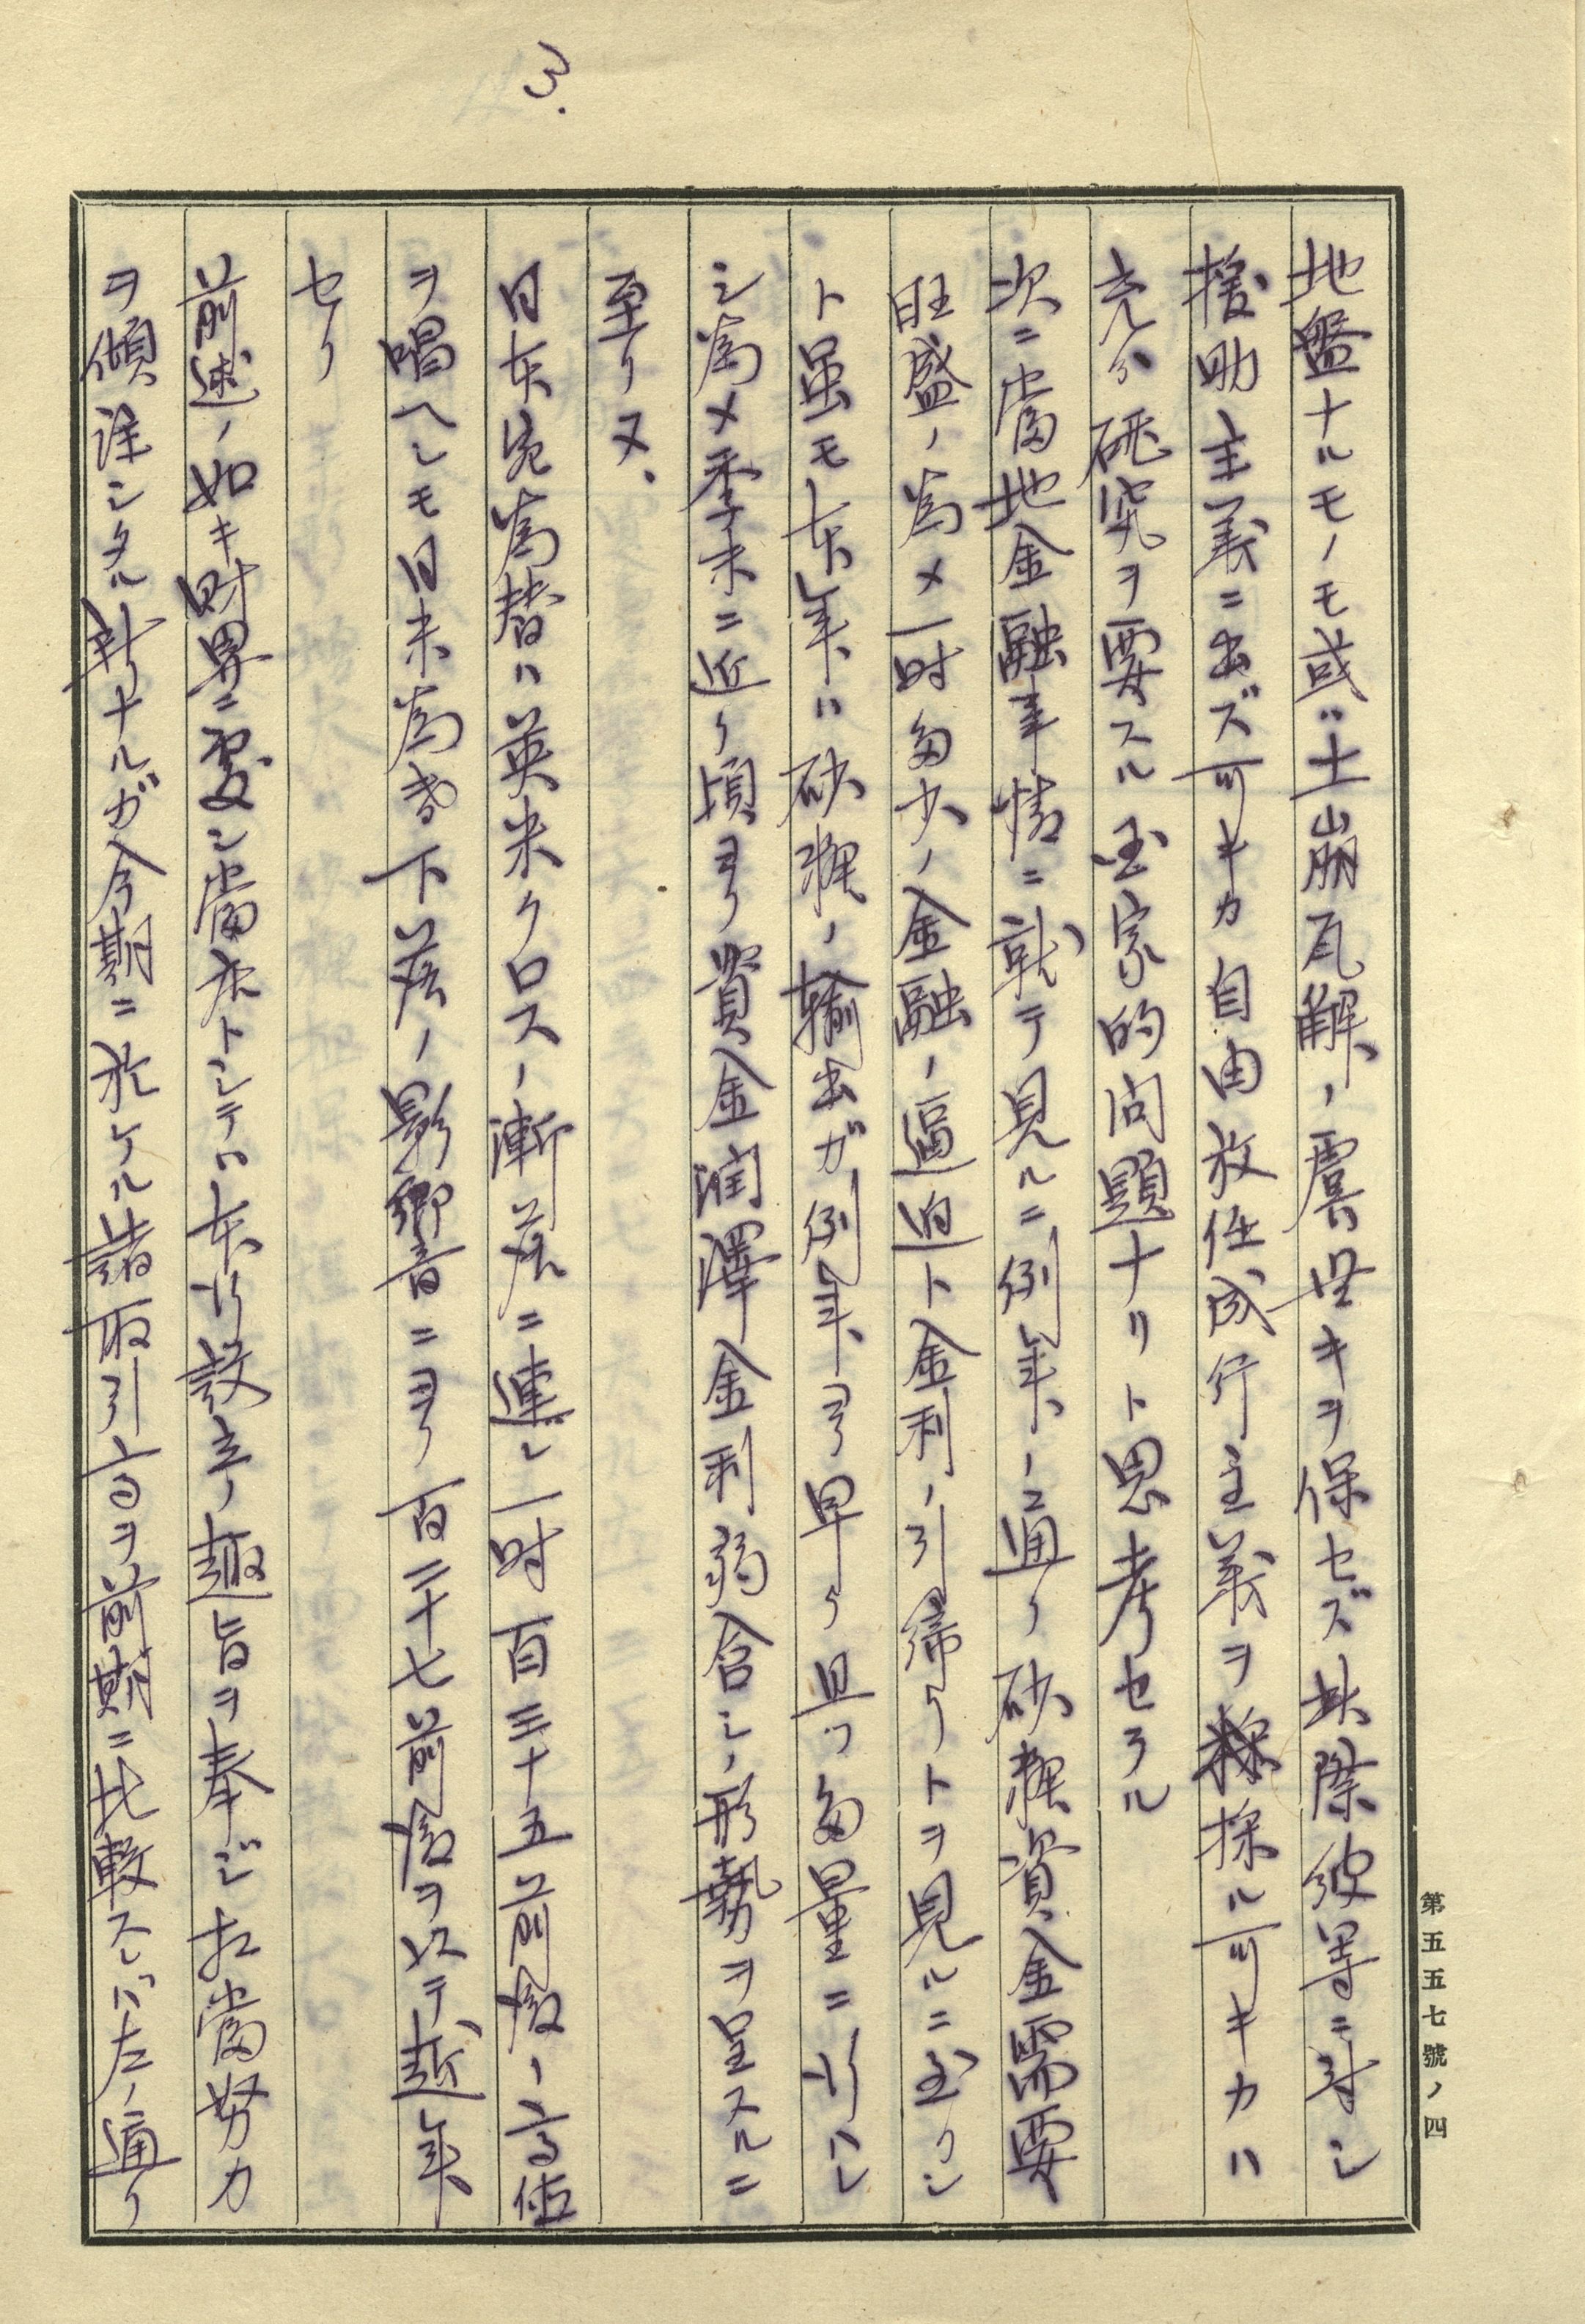 3.
地盤ナルモノモ或ハ土崩瓦解ノ虞無キヲ保セズ此際彼等ニ対シ
援助主義ニ出ズ可キカ自由放任成行主義ヲ採ル可キカハ
充分研究ヲ要スル国家的問題ナリト思考セラル
次ニ當地金融事情ニ就テ見ルニ例年ノ通リ砂糖資金需要
旺盛ノ為メ一時多少ノ金融ノ逼迫ト金利ノ引締リトヲ見ルニ至リシ
ト虽モ本年ハ砂糖ノ輸出ガ例年ヨリ早ク且ツ多量ニ行ハレ
シ為メ季末ニ近ク頃ヨリ資金潤澤金利弱含ミノ形勢ヲ呈スルニ
至リ又、
日本宛為替ハ英米クロスノ漸落ニ連レ一時百三十五前後ノ高値
ヲ唱ヘシモ日米為替下落ノ影響ニヨリ百二十七前後ヲ以テ越年
セリ
前述ノ如キ財界ニ處シ當店トシテハ本行設立ノ趣旨ヲ奉ジ相當努力
ヲ傾注シタル積ナルガ今期ニ於ケル諸取引高ヲ前期ニ比較スレバ左ノ通リ
第五五七號ノ四